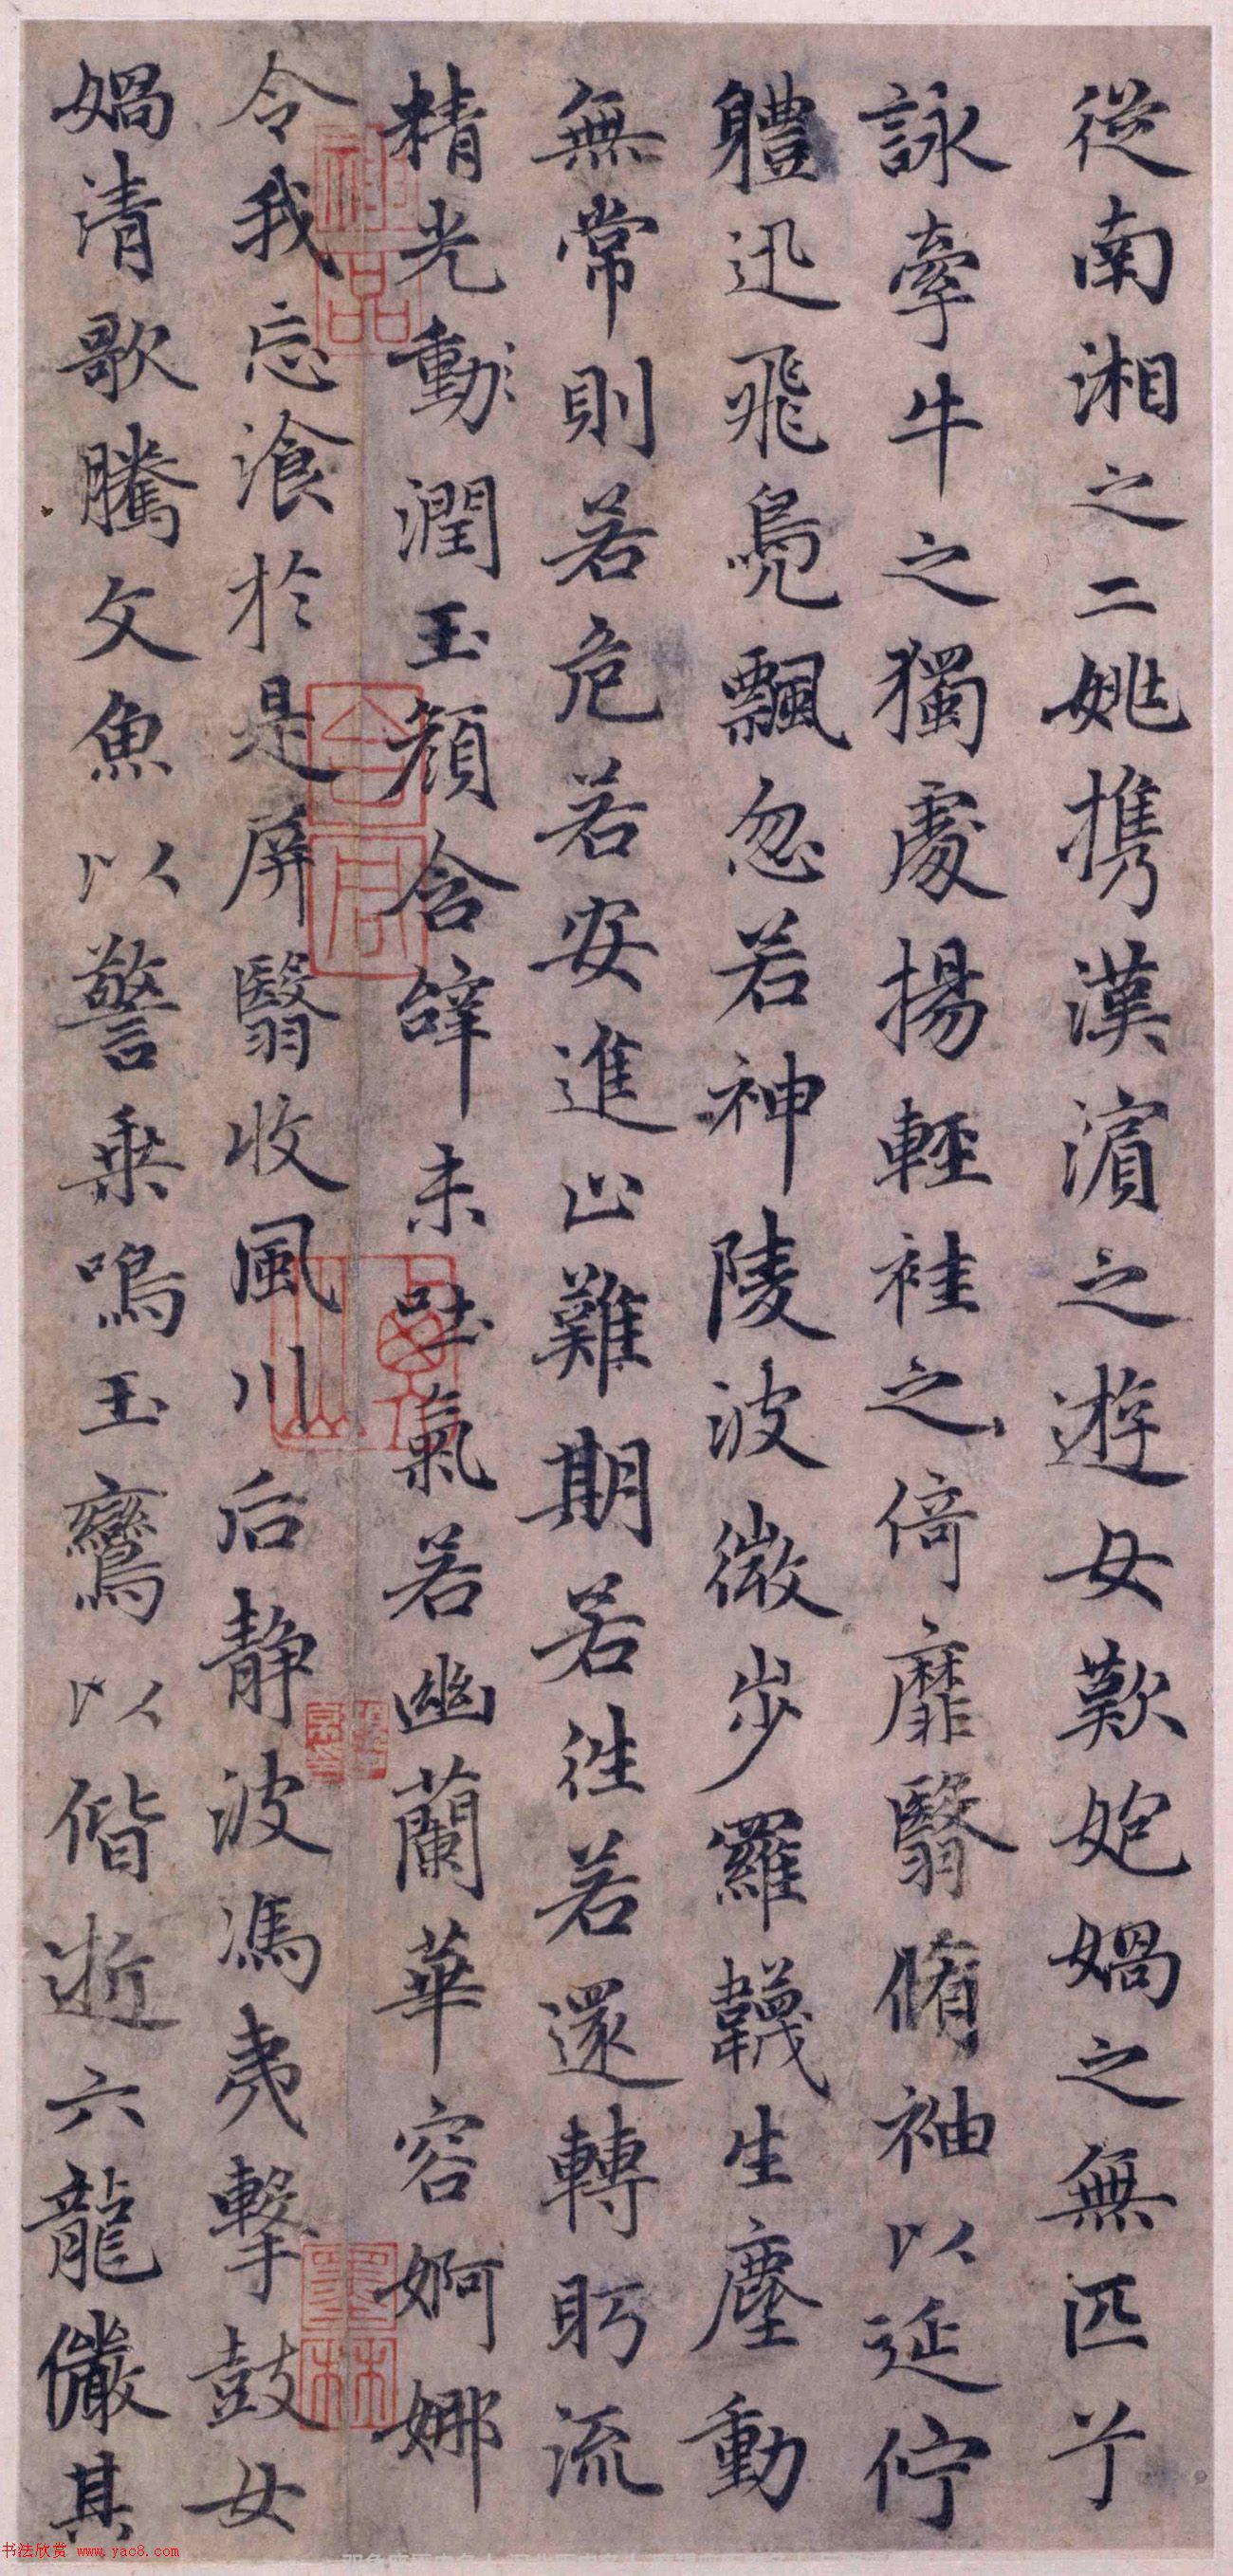 從南湘之二姚攜漢濱之遊女歎匏媧之無匹兮
詠牽牛之獨處揚輕袿之倚靡翳脩袖以延佇
軆迅飛鳧飄忽若神陵波微步羅韈生塵動
無常則若危若安進止難期若往若還轉眄流
精光動潤玉顏含辭未吐氣若幽蘭華容婀娜
令我忘飡於是屏翳收風川后靜波馮夷擊鼓女
媧清歌騰文魚以警乗鳴玉鸞以偕逝六龍儼其
神品
墨林
书法欣赏 www.yac8.com